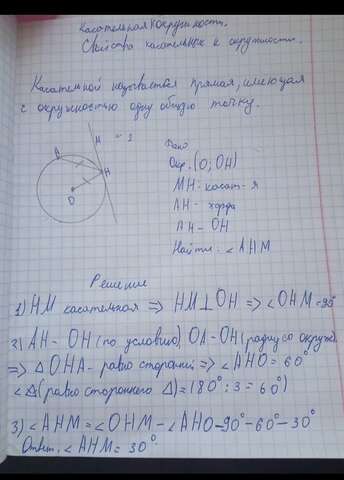 Касательная к окружности.
Свойства касательных к окружности.
Касательной называется прямая, имеющая
с окружностью одну общую точку.
Дано
Окр. (O; OH)
MH - касат-я
AH - хорда
AH - OH
Найти. ∠AHM
M
A
H
O
Решение
1) HM касательная ⇒ HM⊥OH ⇒ ∠OHM=90°
2) AH - OH (по условию) OA-OH (радиусы окруж.)
⇒ △OHA - равносторонний ⇒ ∠AHO = 60°
∠△(равностороннего △)=180°:3=60°)
3) ∠AHM = ∠OHM - ∠AHO - 90° - 60° - 30°
Ответ. ∠AHM = 30°.